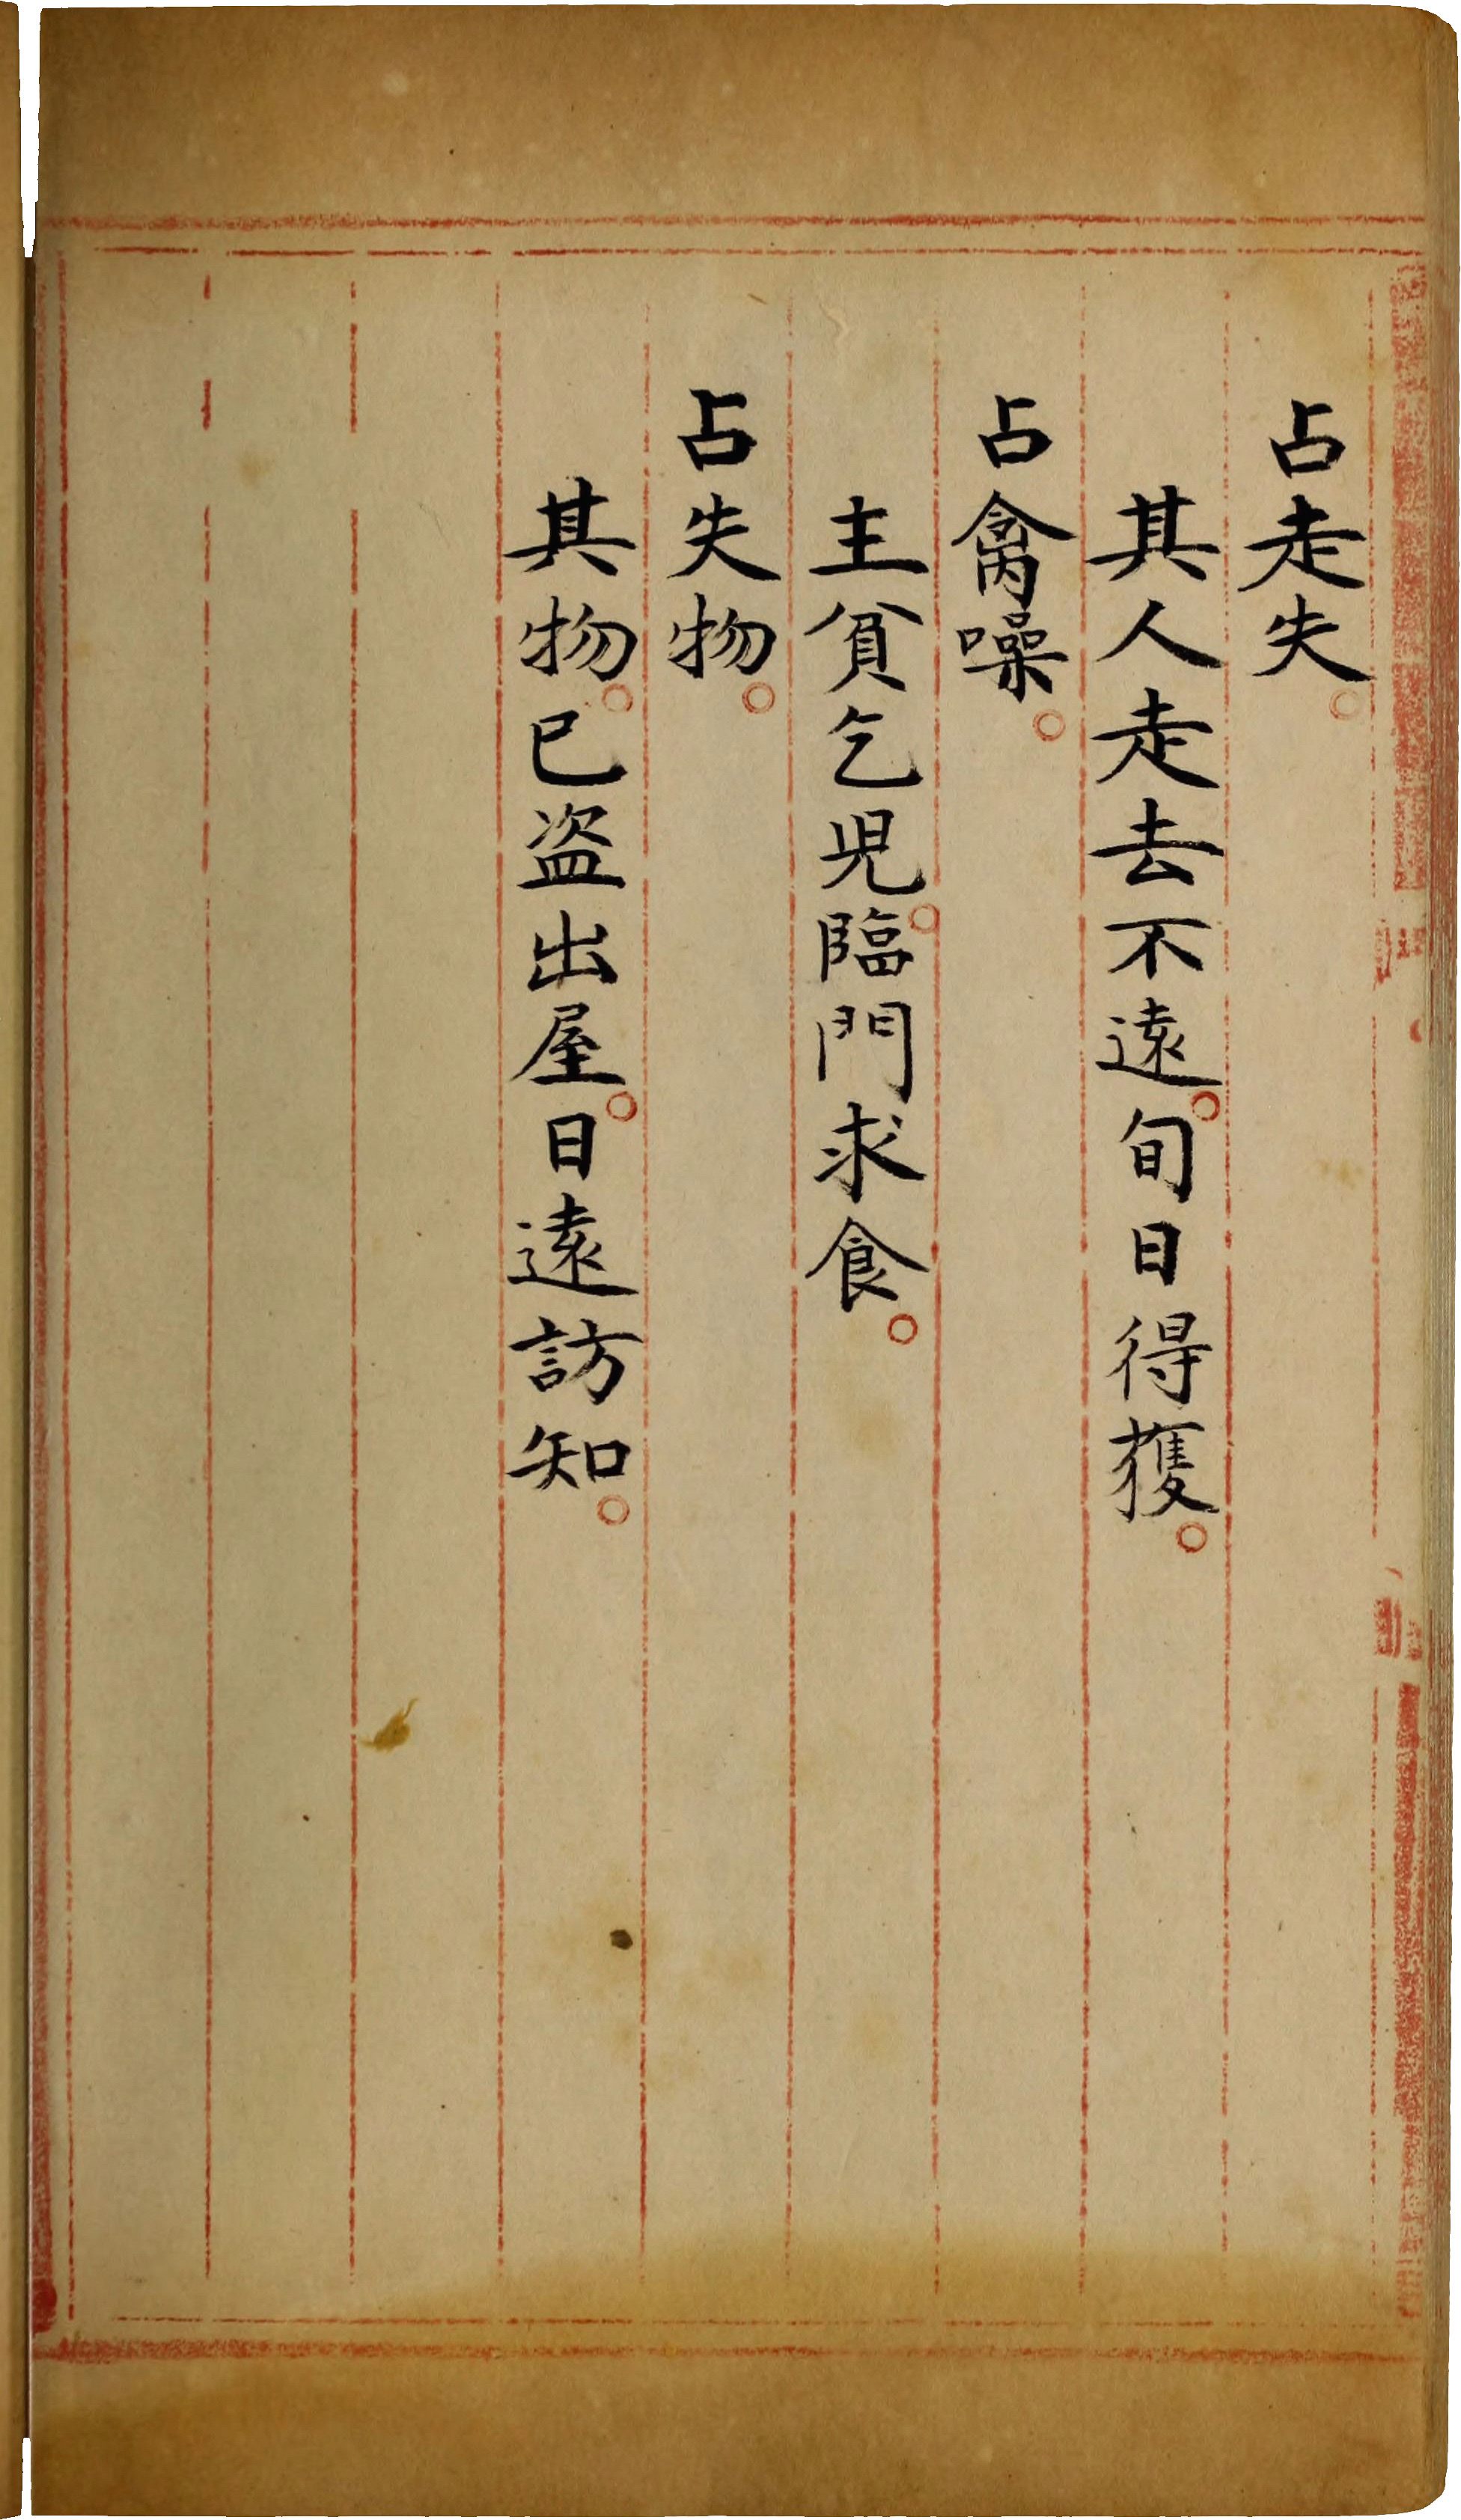 占走失。
其人走去不遠。旬日得獲。
占禽噪。
主貧乞児。臨門求食。
占失物。
其物。已盗出屋。日遠訪知。